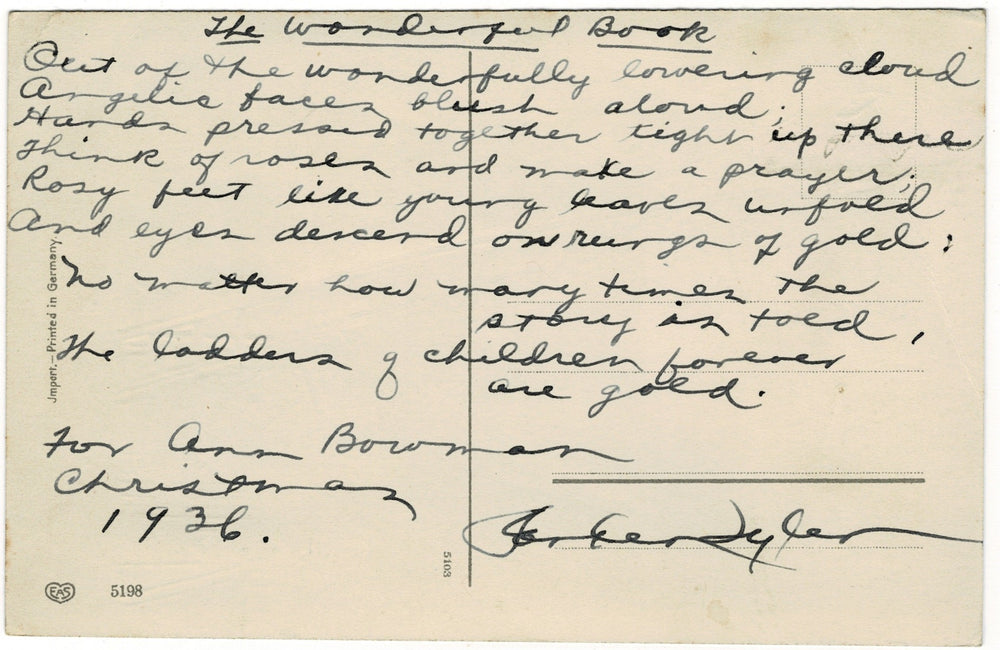 The Wonderful Book
Out of the wonderfully lowering cloud
Angelic faces blush aloud;
Hands pressed together tight up there
Think of roses and make a prayer;
Rosy feet like young leaves unfold
And eyes descend on rungs of gold:
No matter how many times the
story is told,
The ladders of children forever
are gold.
For Ann Bowman
Christmas
1936.
Parker Tyler
Import.—Printed in Germany.
5103
EAS
5198